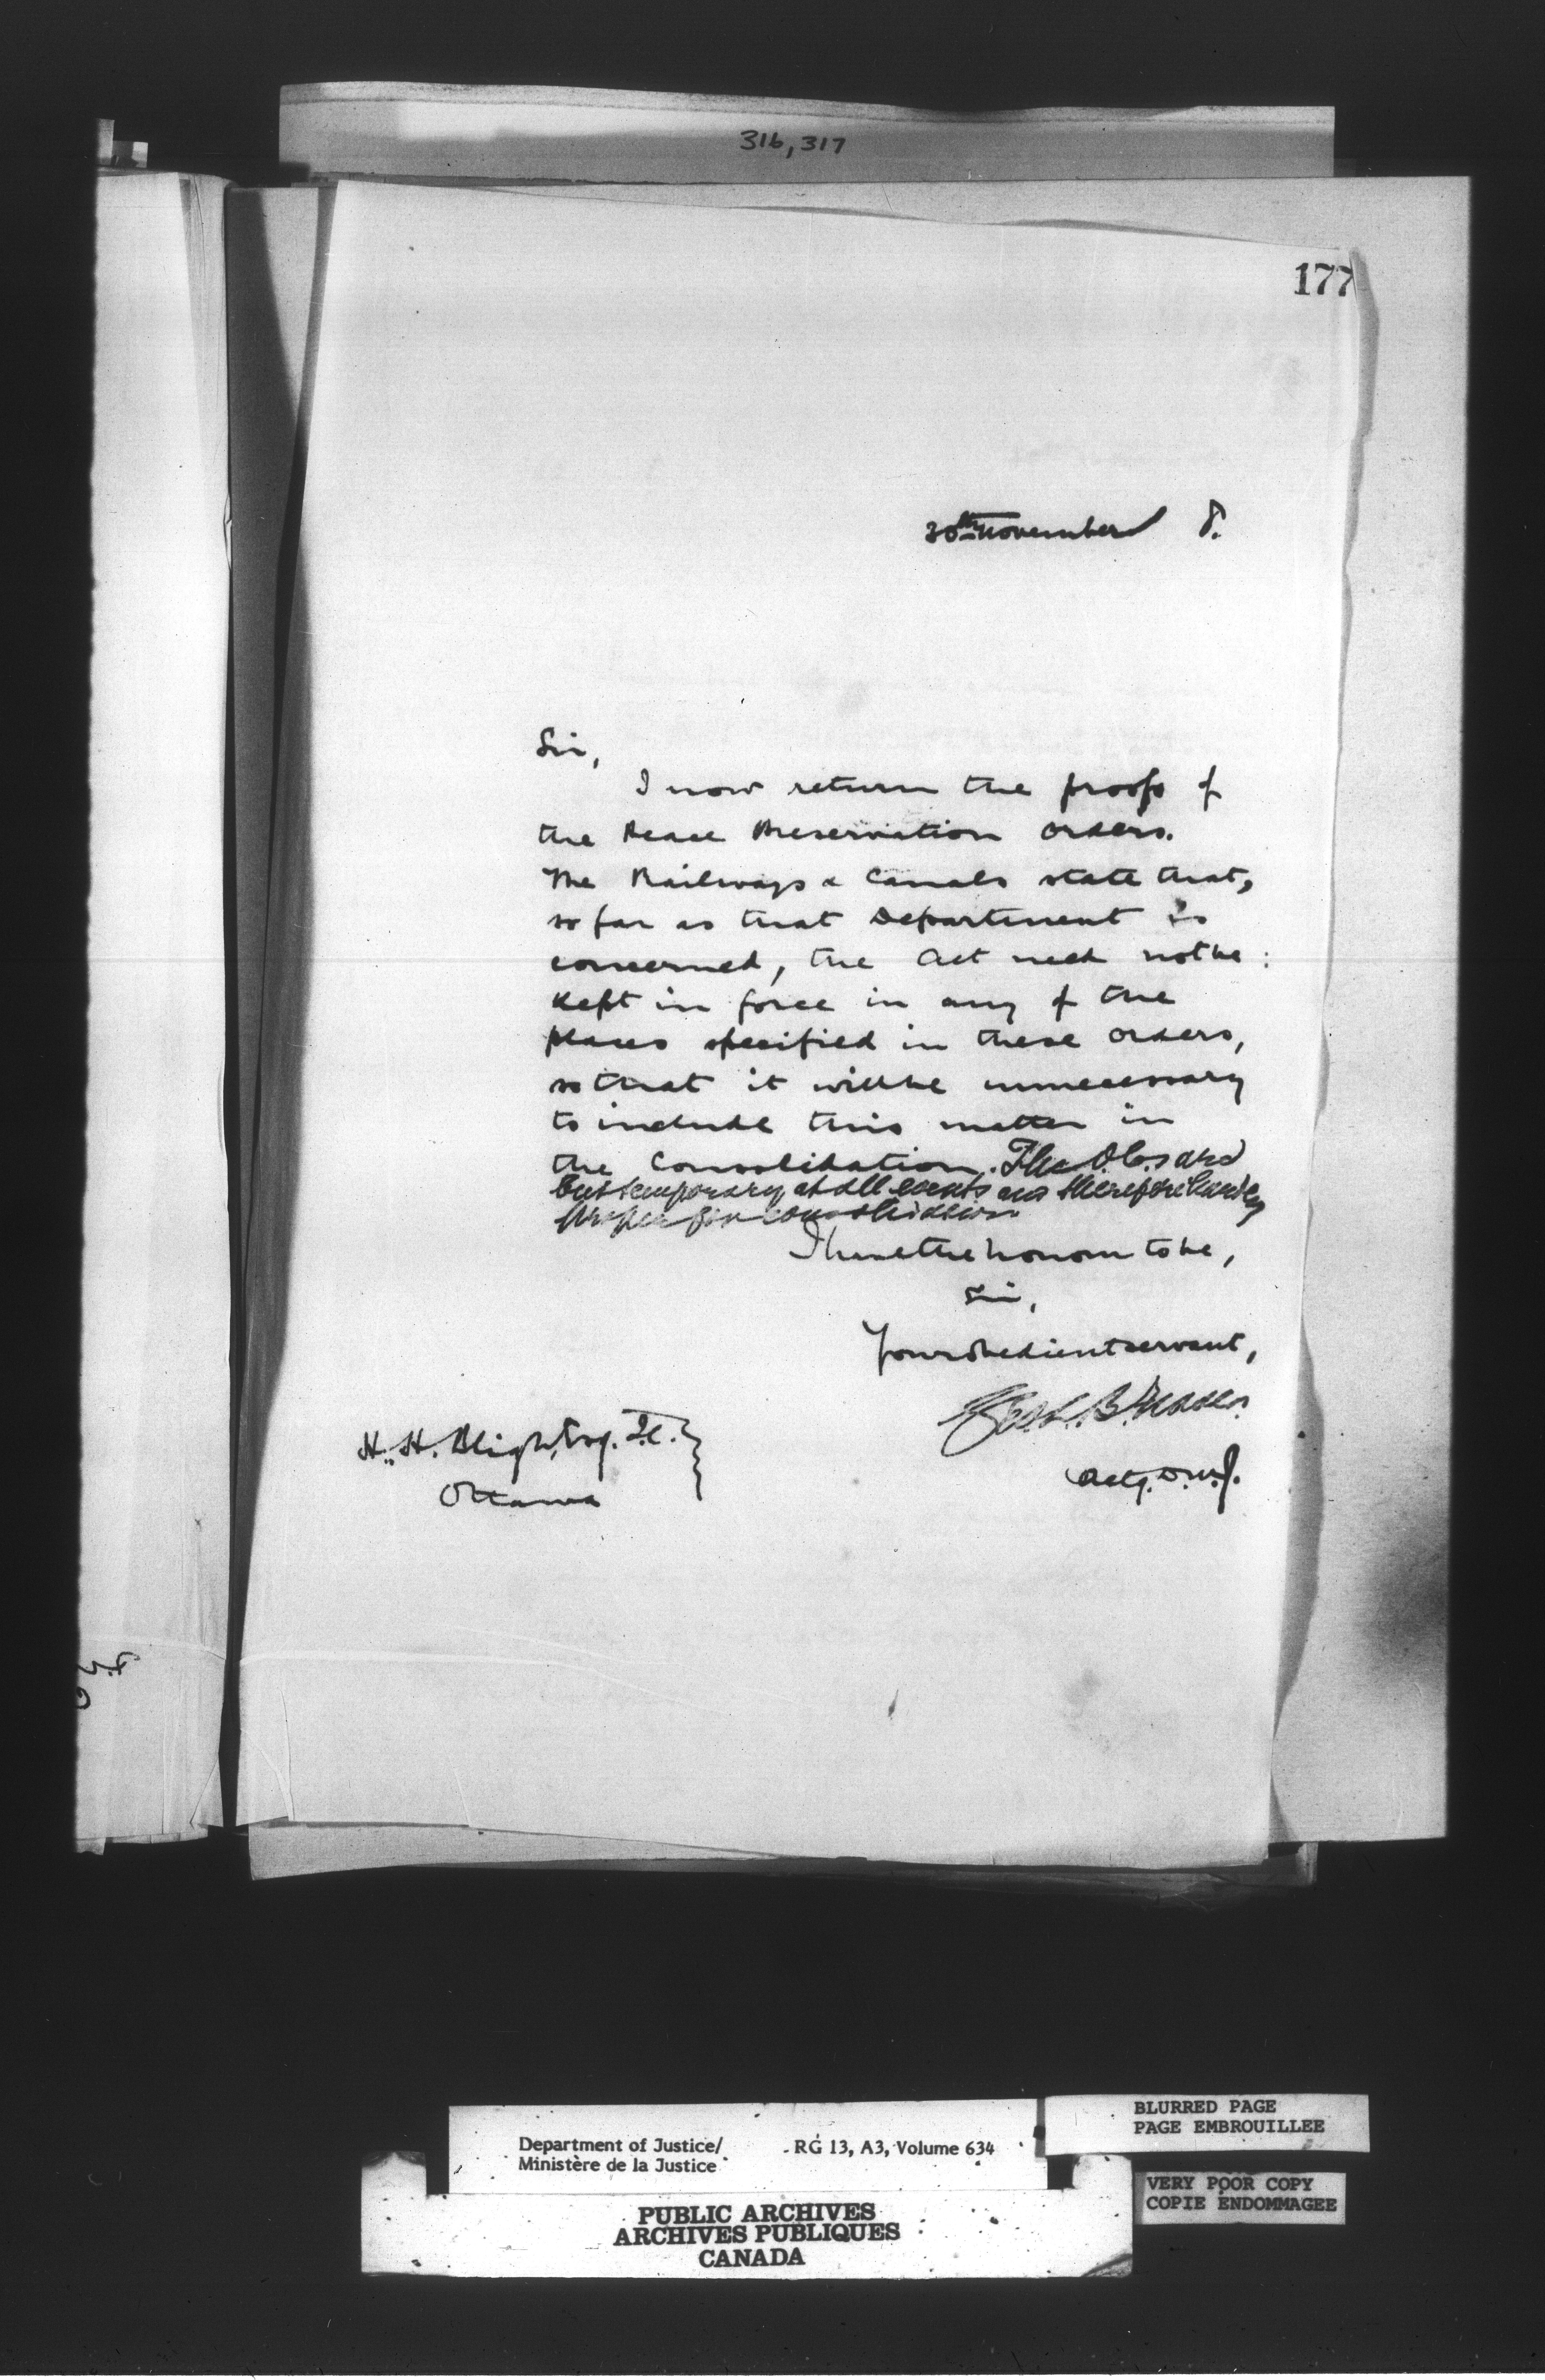 316, 317
177
30th November 8.
Sir,
I now return the proofs of
the Peace Preservation Orders.
The Railways & Canals state that,
so far as that Department is
concerned, the Act need not be
kept in force in any of the
places specified in these orders,
so that it will be unnecessary
to include this matter in
the Consolidation. The O.C.s are
but temporary at all events and therefore hardly
proper for consolidation
I have the honour to be,
Sir,
Your obedient servant,
Actg. D.M.J.
H. H. Bligh, Esq. Q.C.
Ottawa
Department of Justice/
Ministère de la Justice
RG 13, A3, Volume 634
BLURRED PAGE
PAGE EMBROUILLEE
VERY POOR COPY
COPIE ENDOMMAGEE
PUBLIC ARCHIVES
ARCHIVES PUBLIQUES
CANADA